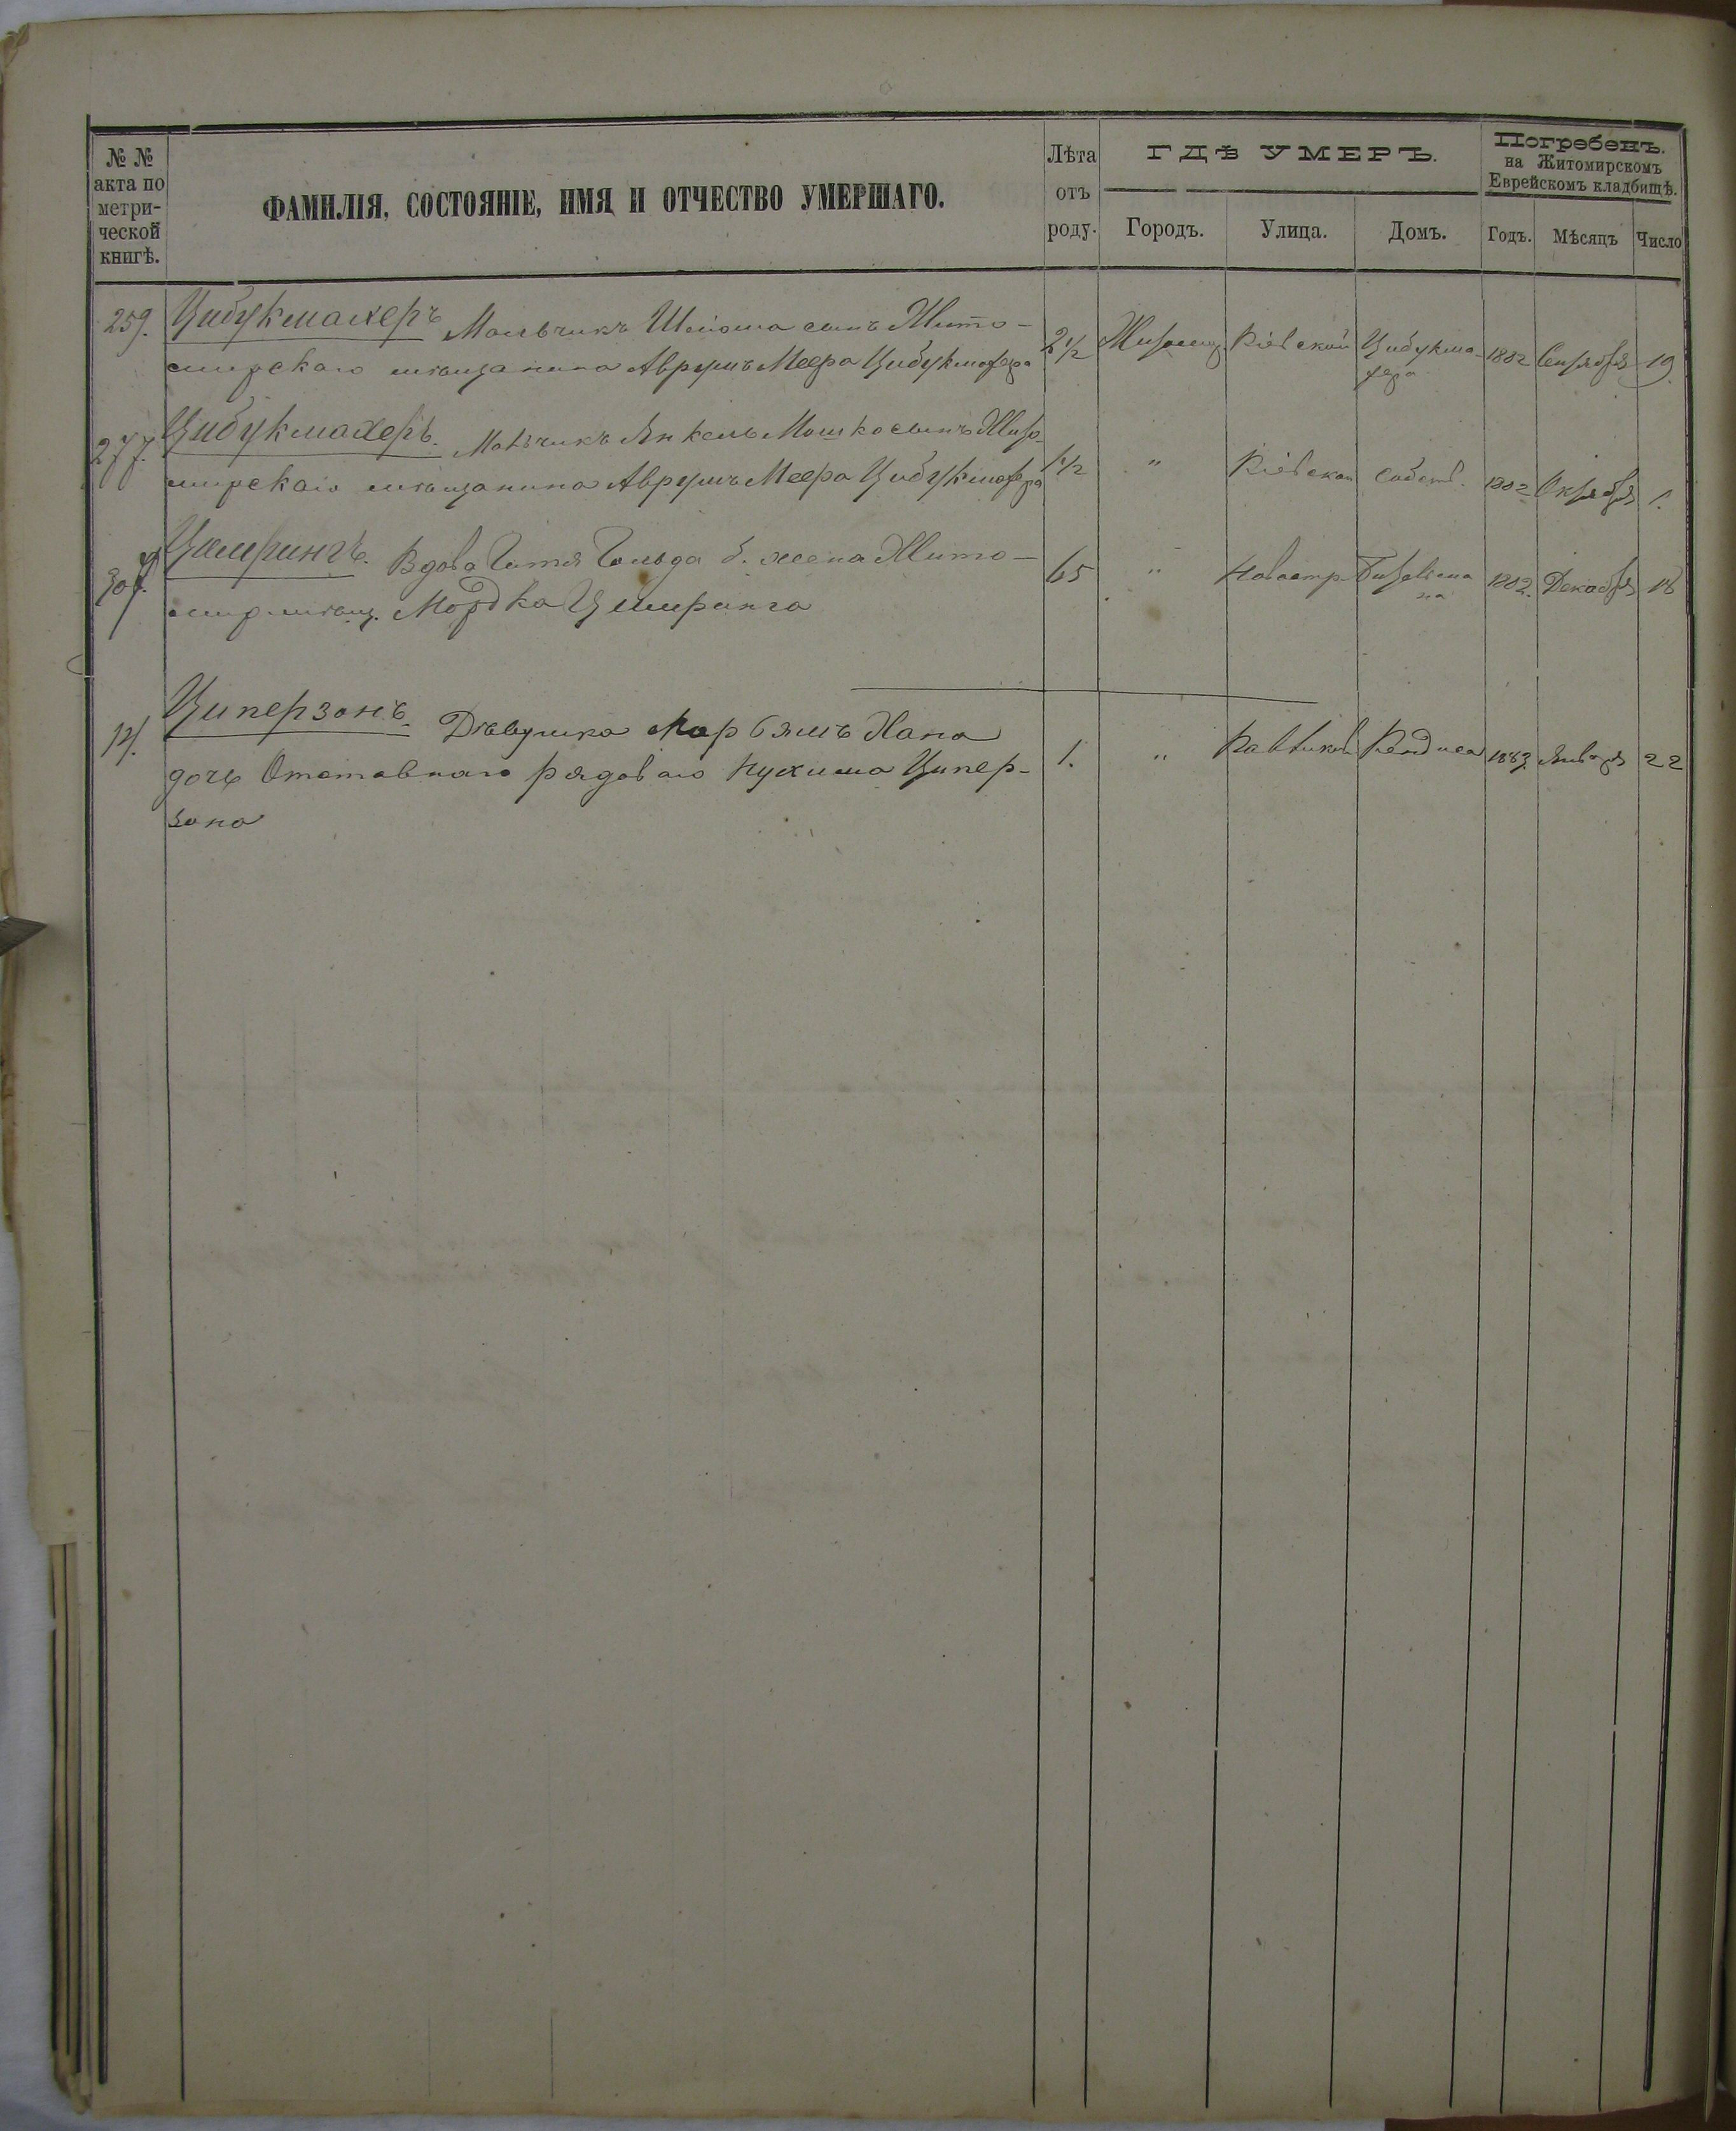 № №
акта по
метри-
ческой
книгѣ.
ФАМИЛІЯ, СОСТОЯНІЕ, ИМЯ И ОТЧЕСТВО УМЕРШАГО.
Лѣта
отъ
роду.
ГДѢ УМЕРЪ.
Городъ. Улица. Домъ.
Погребенъ.
на Житомирскомъ
Еврейскомъ кладбищѣ.
Годъ. Мѣсяцъ Число
259. Цибукмахеръ Мальчикъ Шлиома сынъ Жито-
мирскаго мѣщанина Аврумъ Меера Цибукмахера
2 1/2 Житомиръ Кіевской Цибукма-
хера
1882 Сентября 19
277. Цибукмахеръ. Мальчикъ Янкель Мошко сынъ Жито-
мирскаго мѣщанина Аврумъ Меера Цибукмахера
1/2 " Кіевской собств. 1882 Октября 1.
Цимрингъ. Вдова Гитля Гольда б. жена Жито-
мир мѣщ. Мордка Цимринга
65 " Новостр 1882. Декабря
Циперзонъ. Дѣвушка Марьямъ Хана
дочь Отставнаго рядоваго Нухима Ципер-
зона
1. " 1883. Января 22